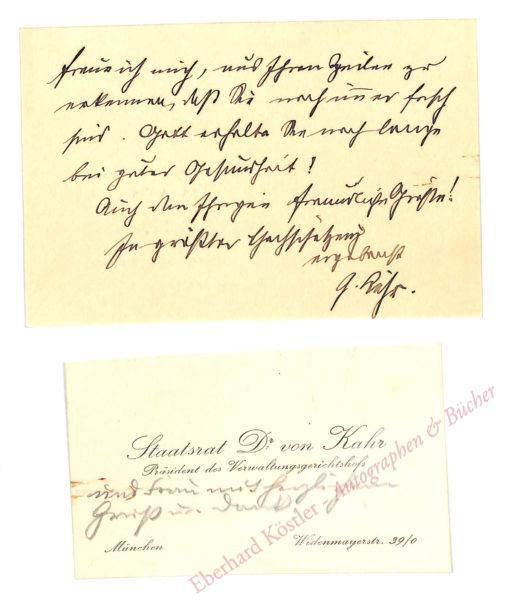 freue ich mich, aus Ihren Zeilen zu
erkennen, daß Sie noch immer frisch
sind. Gott erhalte Sie noch lange
bei guter Gesundheit!
Auch den Ihrigen freundliche Grüße!
In größter Hochschätzung
ergebenst
G. Kahr.
Staatsrat Dr. von Kahr
Präsident des Verwaltungsgerichtshofs
und Frau mit herzlichem
Gruß und Dank
München
Widenmayerstr. 39/0
Eberhard Köstler - Autographen & Bücher